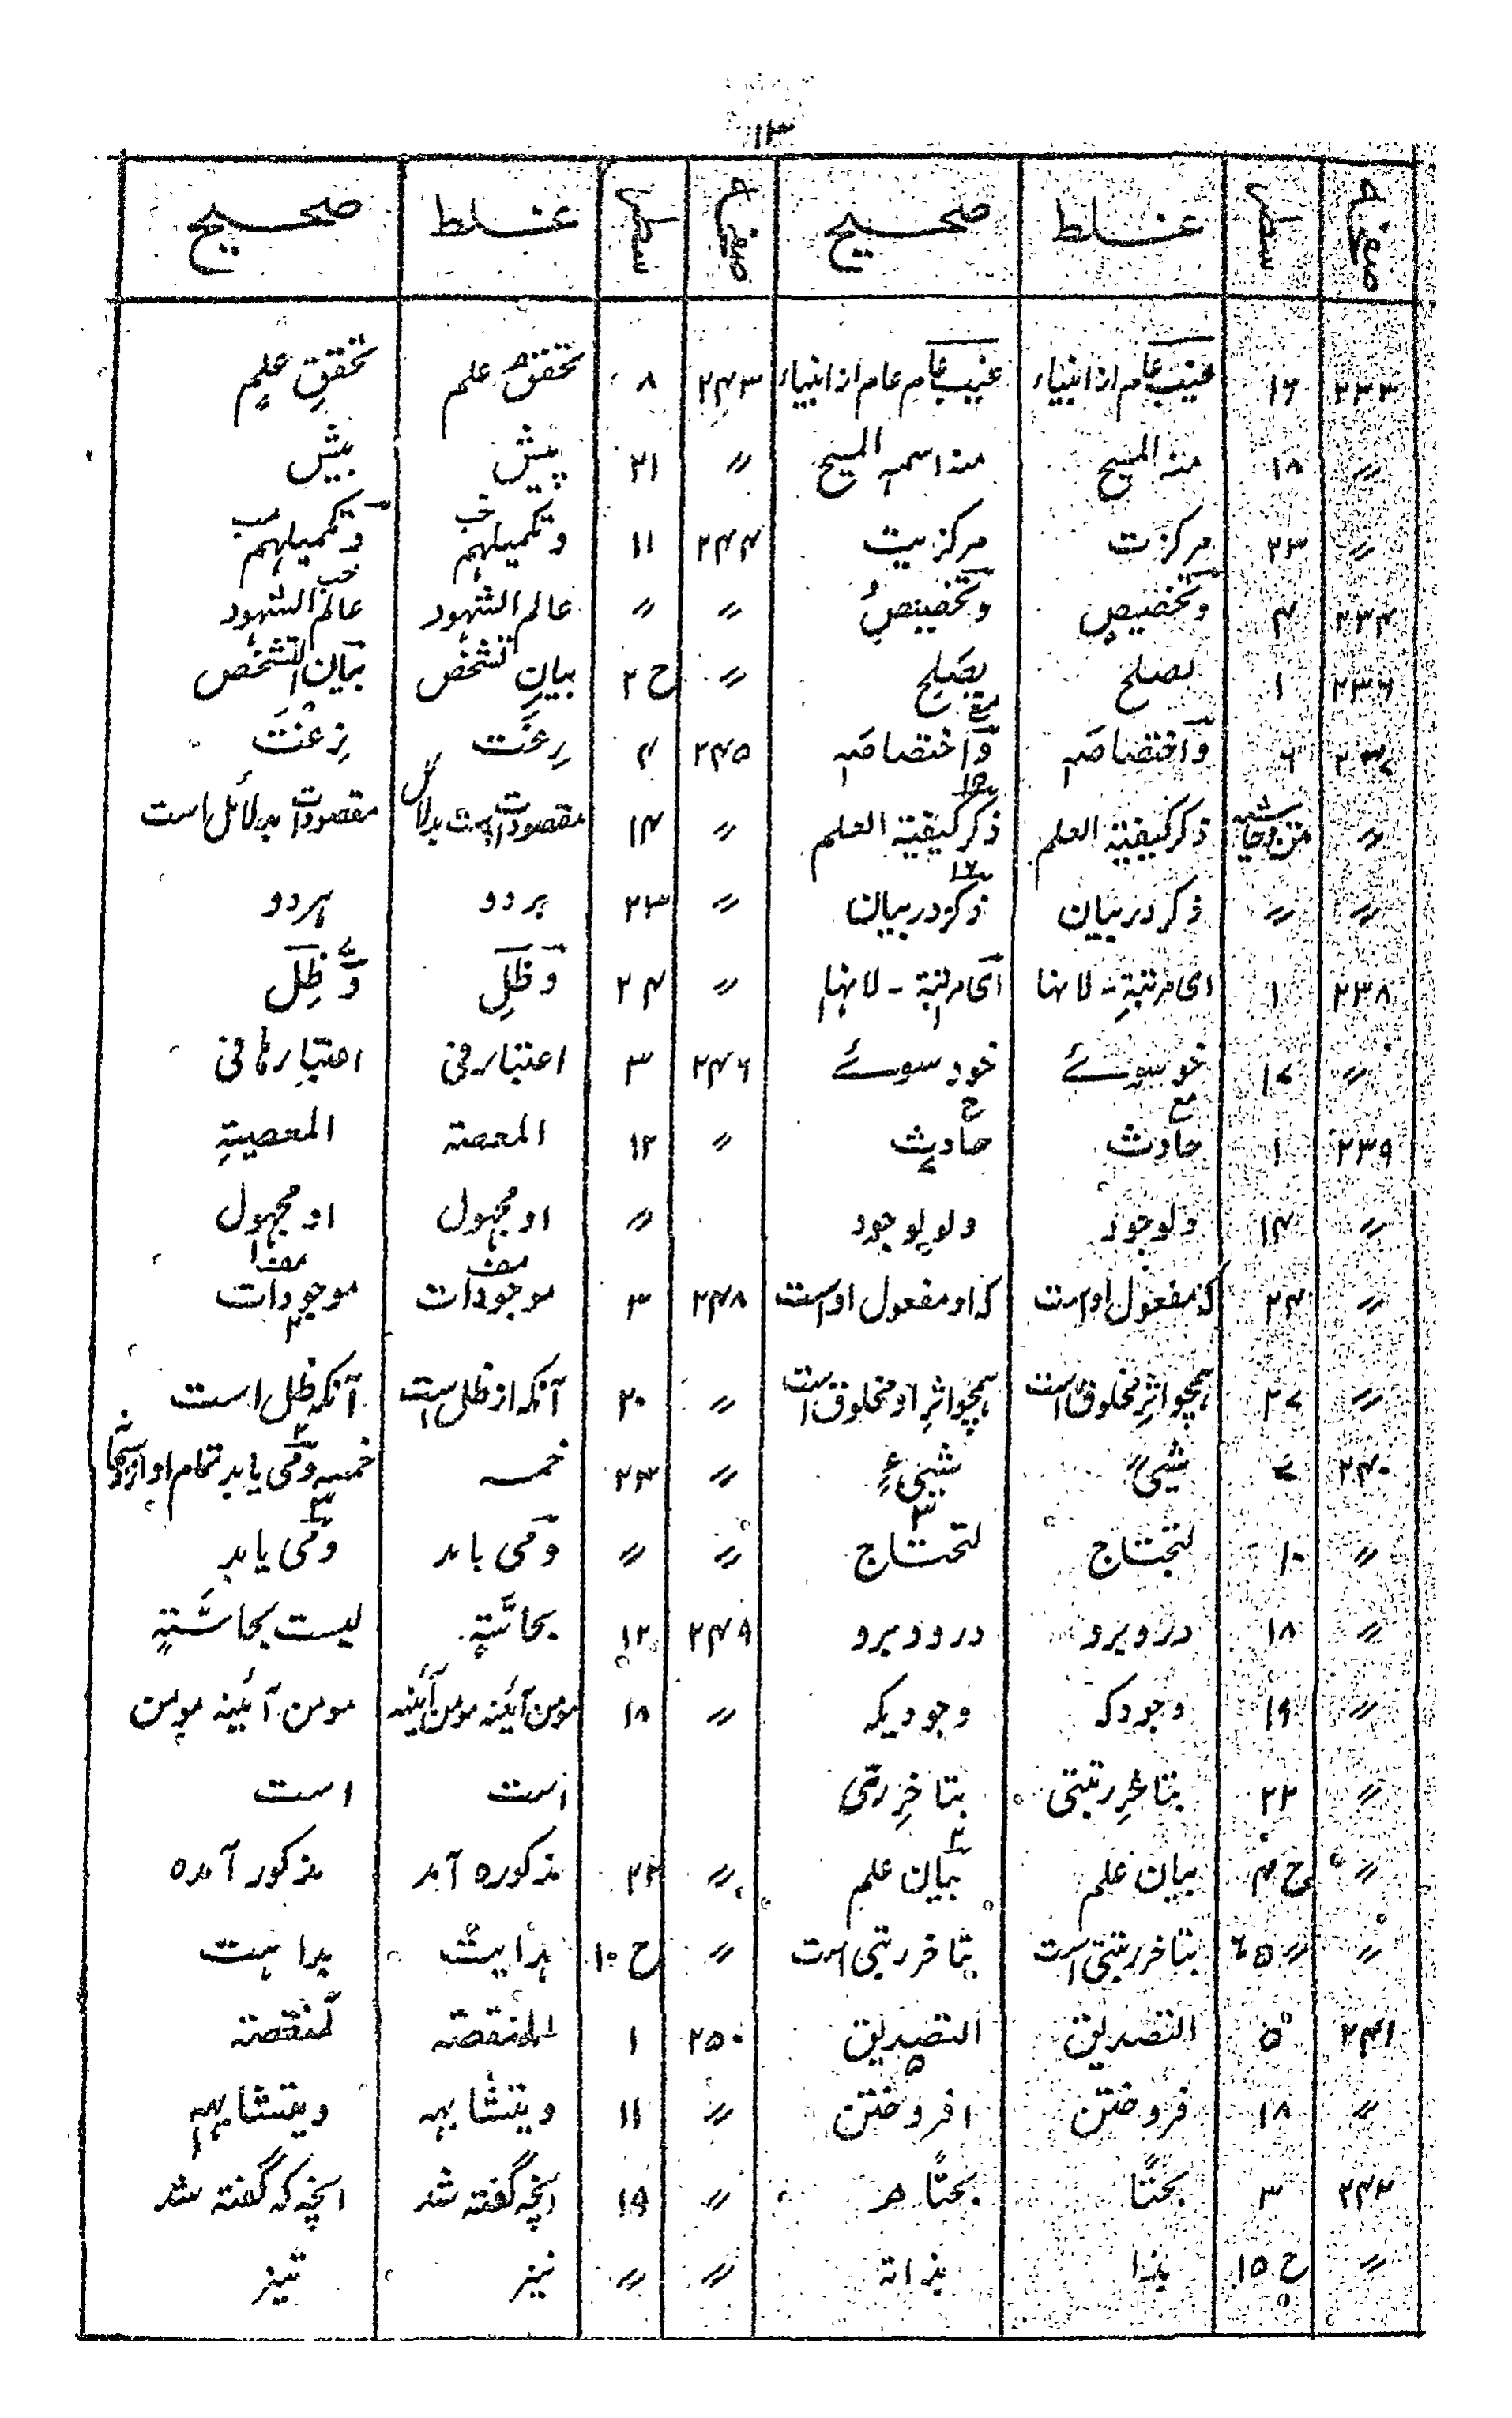 ۱۳
صفحہ سطر غلط صحیح صفحہ سطر غلط صحیح
۲۳۳ ۱۶ غیب عام از انبیاء غیب عام عام از انبیاء ۲۴۳ ۸ تحقق علم تحققِ علمٍ
〃 ۱۸ منہ المسیح منہ اسمہ المسیح 〃 ۲۱ پیش بیش
〃 ۲۳ مرکزت مرکزیت ۲۴۴ ۱۱ وتکمیلہم وتکمیلہم
۲۳۴ ۴ وتخصیصٍ وتخصیصُ 〃 〃 عالم الشہود عالم الشہود
۲۳۶ ۱ بصلح بصَلحِ 〃 ح ۲ بیانِ تشخص بیان التشخص
۲۳۷ ۶ واختصاصہ واختصاصہ ۲۴۵ ۴ رعنت زعنت
〃 ذکر کیفیتہ العلم ذکر کیفیتہ العلم 〃 ۱۴ مقصودات است بدلائل مقصودات بدلائل است
〃 〃 ذکر در بیان ذکر در بیان 〃 ۲۳ بردو ہردو
۲۳۸ ۱ ای مرتبۃِ - لانہا ای مرتبۃ - لانہا 〃 ۲۴ وظلِ وظِلَ
〃 ۱۷ خوسوئے خود سوئے ۲۴۶ ۳ اعتبار فی اعتبارہا فی
۲۳۹ ۱ حادث حادثٍ 〃 ۱۲ المعصتہ المعصیتہِ
〃 ۱۴ ولوجود ولو لوجود 〃 او مجہول او مجہول
〃 ۲۴ کہ مفعول اواست کہ او مفعول اواست ۲۴۸ ۳ موجودات موجودات
〃 ۲۷ ہمچو اثرِ مخلوق است ہمچو اثرِ او مخلوق است 〃 ۲۰ آنکہ از ظل است آنکہ ظل است
۲۴۰ ۷ شیئ شیئءٍ 〃 ۲۳ خمسہ خمسہ ومی یابد تمام او
〃 ۱۰ لتحتاج لتحتاج 〃 〃 ومی باید ومی یابد
〃 ۱۸ درویرو درو ویرو ۲۴۹ ۱۲ بحاسّتہٍ لیست بحاسّتہٍ
〃 ۱۹ وجود کہ وجودیکہ 〃 ۱۸ مومن آئینہ مومن آئینہ مومن آئینہ مومن
〃 ۲۲ بتاخرِ رتبتی بتاخرِ رتبی است است
〃 ح ۴ بیان علم بیان علم 〃 ۲۲ مذکورہ آمد مذکور آمدہ
〃 〃 ۵ ۶ بتاخر رتبتی است بتاخر رتبی است 〃 ح ۱۰ ہدایت بداہت
۲۴۱ ۵ التصدیق التصدیق ۲۵۰ ۱ للمنقصتہ لمنقصتہ
〃 ۱۸ فروختن افروختن 〃 ۱۱ ویتشابہہ ویتشابہہ
۲۴۲ ۳ بحتًا بحتًا ھر 〃 ۱۹ انچہ گفتہ شد انچہ کہ گفتہ شد
〃 ح ۱۵ بذا بذاتہ 〃 〃 نیز تمیز